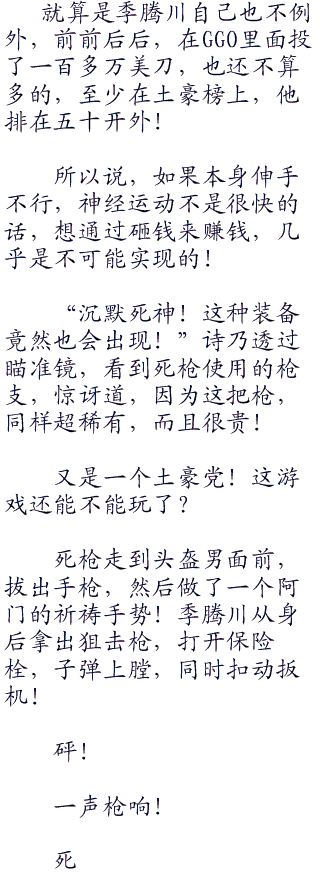 就算是季腾川自己也不例
外，前前后后，在GGO里面投
了一百多万美刀，也还不算
多的，至少在土豪榜上，他
排在五十开外！
所以说，如果本身伸手
不行，神经运动不是很快的
话，想通过砸钱来赚钱，几
乎是不可能实现的！
“沉默死神！这种装备
竟然也会出现！”诗乃透过
瞄准镜，看到死枪使用的枪
支，惊讶道，因为这把枪，
同样超稀有，而且很贵！
又是一个土豪党！这游
戏还能不能玩了？
死枪走到头盔男面前，
拔出手枪，然后做了一个阿
门的祈祷手势！季腾川从身
后拿出狙击枪，打开保险
栓，子弹上膛，同时扣动扳
机！
砰！
一声枪响！
死